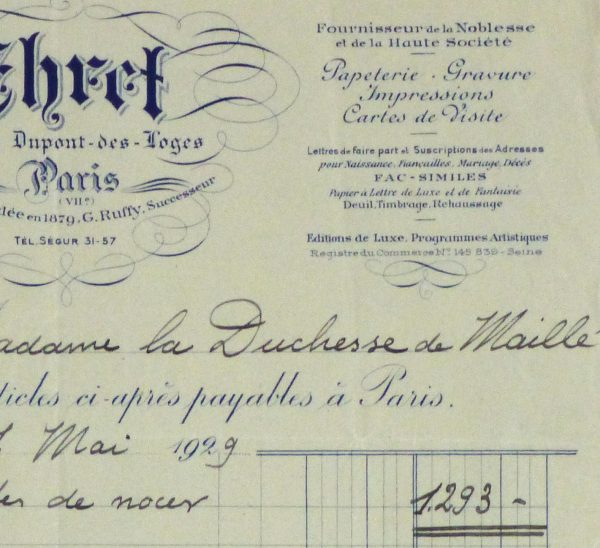 Ehret
Fournisseur de la Noblesse
et de la Haute Société
Papeterie · Gravure
Impressions
Cartes de Visite
Dupont-des-Loges
Paris
(VIIe)
dée en 1879, G. Ruffy, Successeur
TÉL. SÉGUR 31-57
Lettres de faire part et Suscriptions des Adresses
pour Naissance, Fiançailles, Mariage, Décès
FAC-SIMILES
Papier à Lettre de Luxe et de Fantaisie
Deuil, Timbrage, Rehaussage
Editions de Luxe, Programmes Artistiques
Registre du Commerce No 145 839 - Seine
adame la Duchesse de Maillé
ticles ci-après payables à Paris.
Mai 1929
de noces 1.293 -